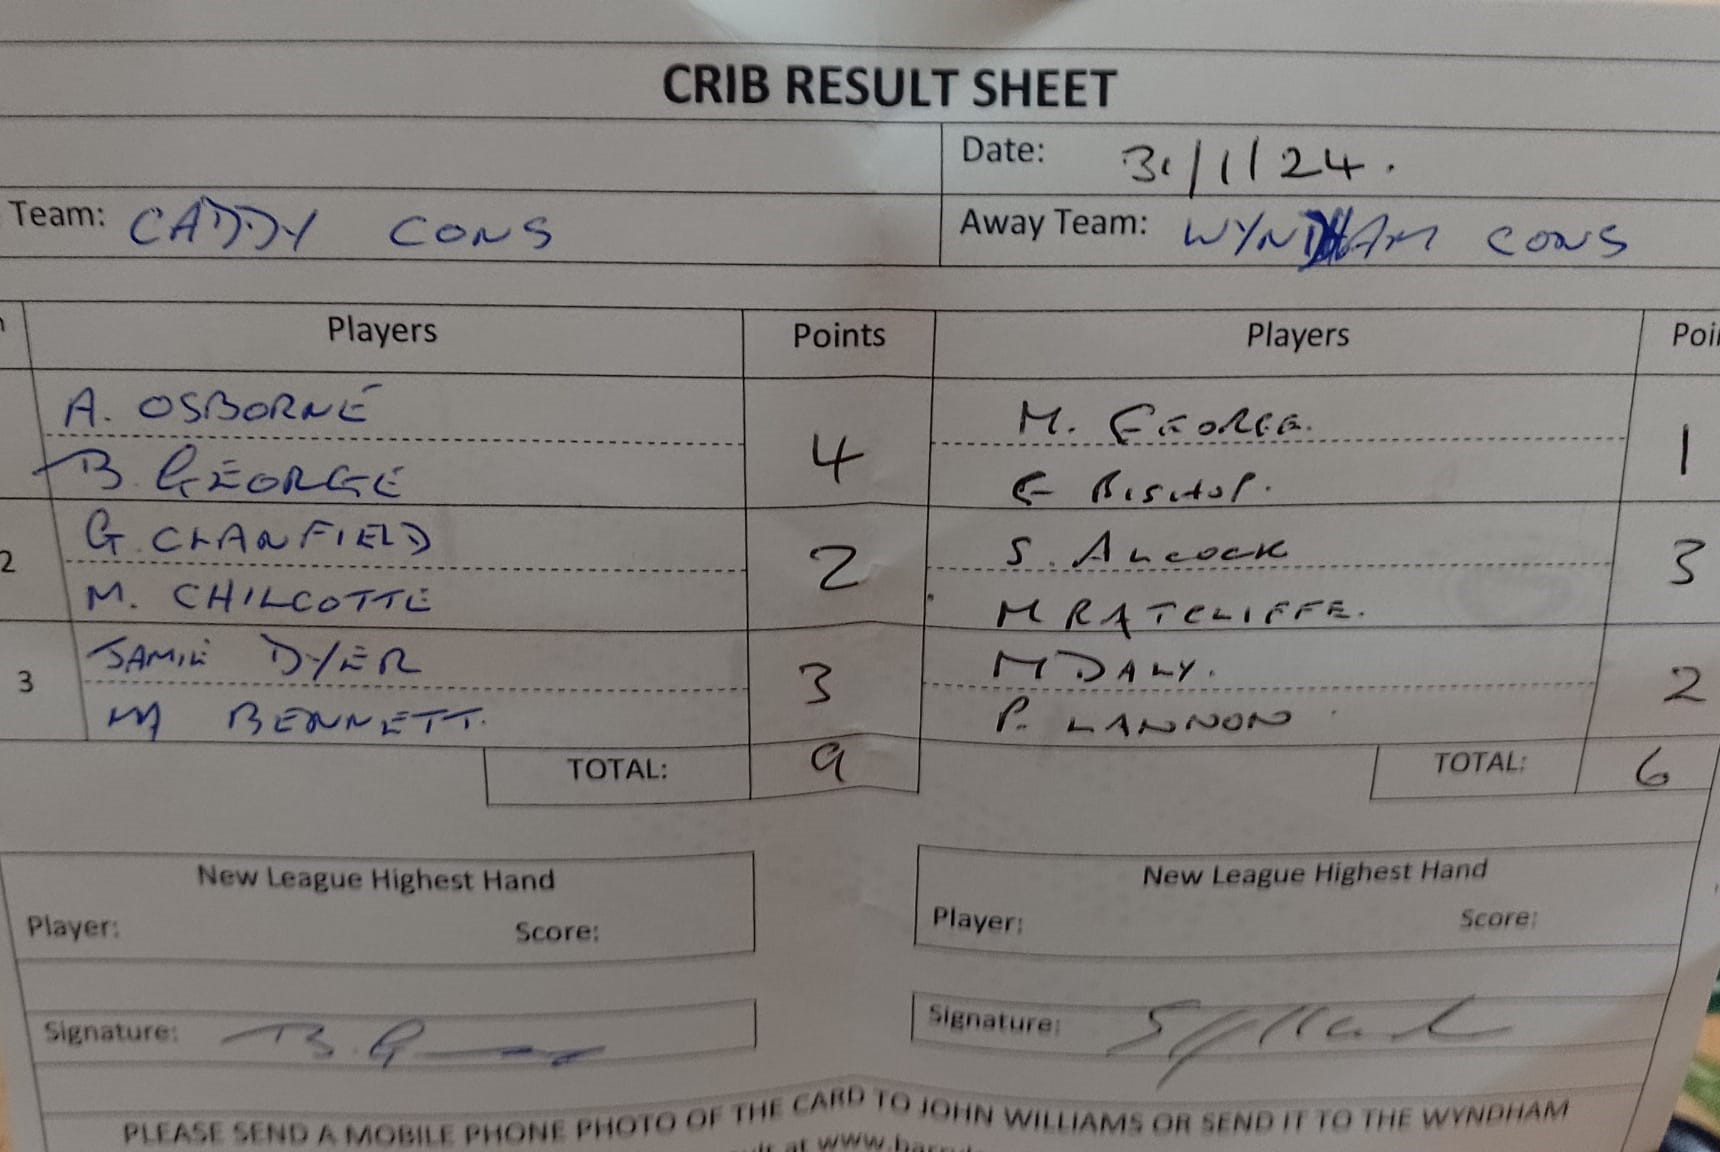 CRIB RESULT SHEET
Date: 31/1/24.
Team: CADDY CONS Away Team: WYNDHAM CONS
Players Points Players Poi
A. OSBORNE 4 M. GEORGE. 1
B. GEORGE G BISHOP.
2 G. CLANFIELD 2 S. ALCOCK 3
M. CHILCOTTE M RATCLIFFE.
3 JAMIE DYER 3 M DALY. 2
M BENNETT. P. LANNON
TOTAL: 9 TOTAL: 6
New League Highest Hand New League Highest Hand
Player: Score: Player: Score:
Signature: B. G Signature:
PLEASE SEND A MOBILE PHONE PHOTO OF THE CARD TO JOHN WILLIAMS OR SEND IT TO THE WYNDHAM
at www.barry